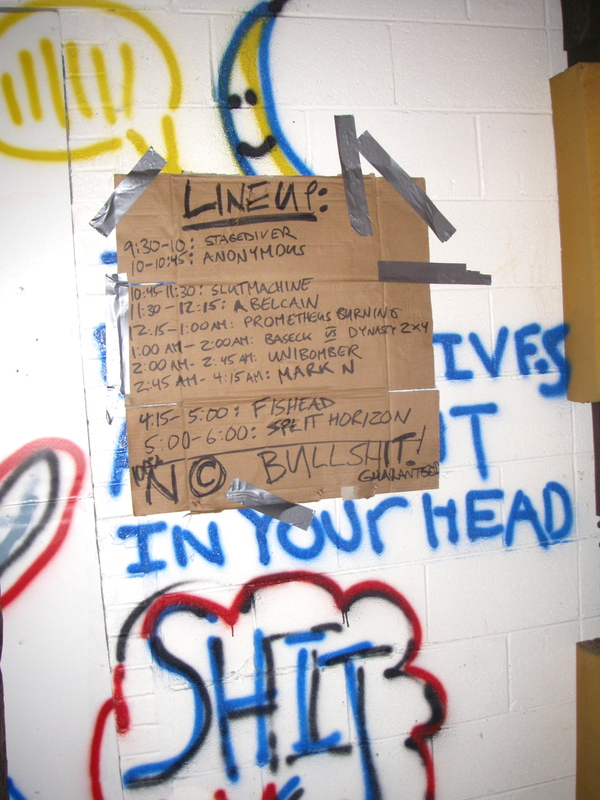 LINEUP:
9:30-10: STAGEDIVER
10-10:45: ANONYMOUS
10:45-11:30: SLUTMACHINE
11:30-12:15: ABELCAIN
12:15-1:00AM: PROMETHEUS BURNING
1:00 AM-2:00AM: BASECK VS DYNASTY 2X4
2:00 AM-2:45AM: UNIBOMBER
2:45AM-4:15AM: MARK N
4:15-5:00: FISHEAD
5:00-6:00: SPLIT HORIZON
100% N © BULLSHIT!
GUARANTEED
IVES
UT
IN YOUR HEAD
SHIT